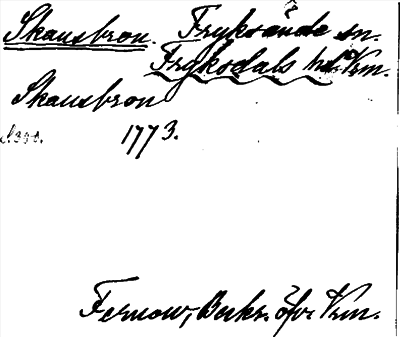 Skansbron. Fryksände sn.
Fryksdals hd. Vrm.
Skansbron
1773.
Fernow, Beskr. öfv. Vrm.